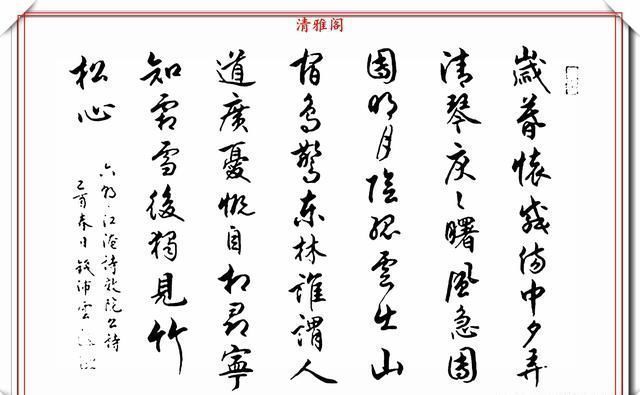 清雅阁
歲暮懷感傷中夕弄
清琴戾々曙風急團
團明月陰孤雲出山
宿鳥驚東林誰謂人
道廣憂慨自相尋寧
知霜雪後獨見竹
松心
六朝江淹詩效阮公詩
乙酉春日錢沛雲